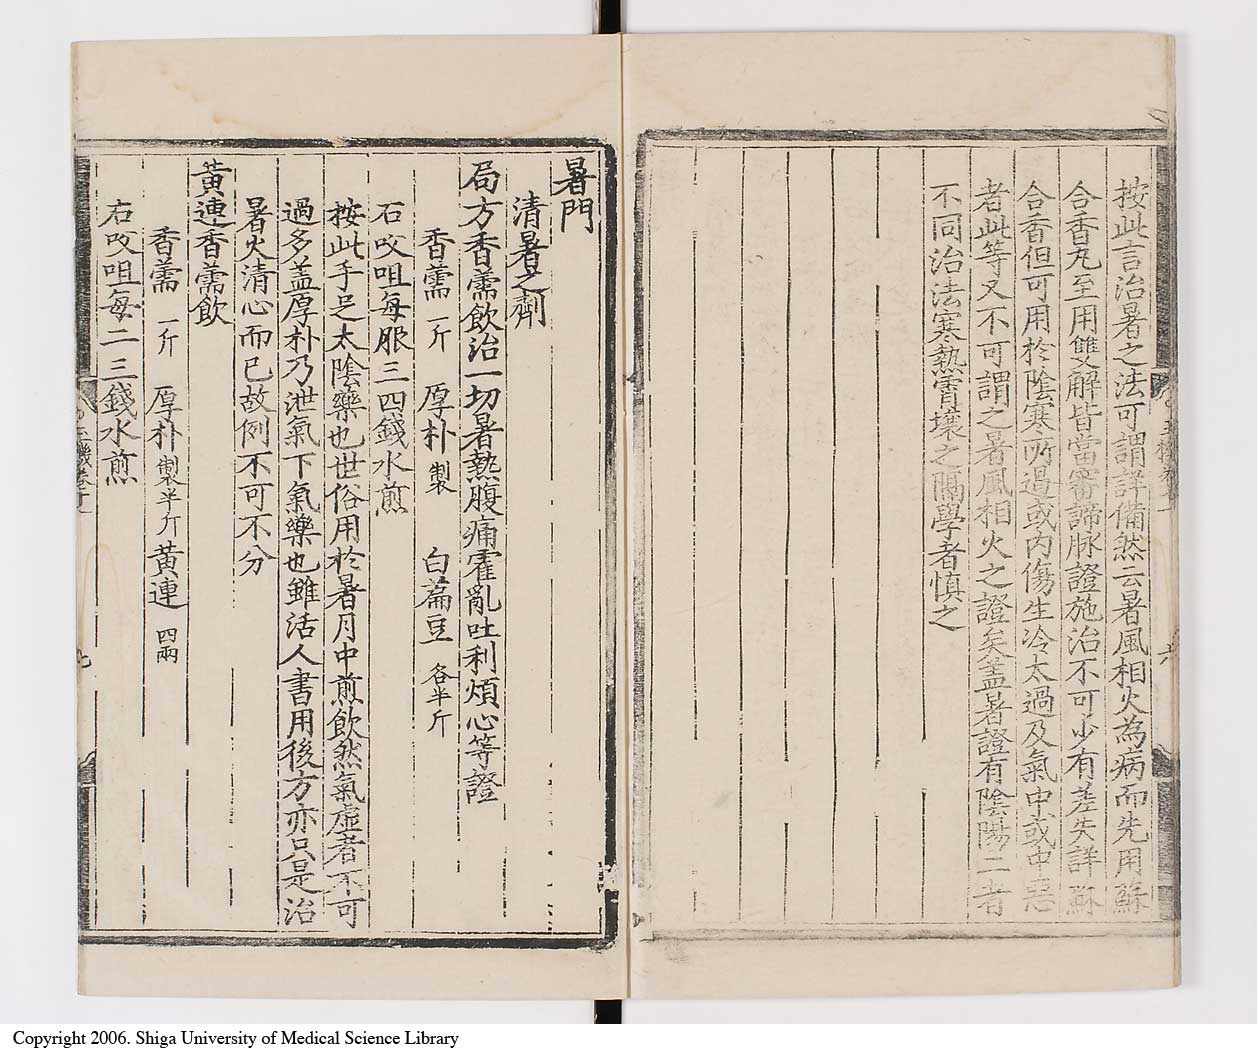 按此言治暑之法可謂詳備然云暑風相火為病而先用蘇
合香丸至用雙解皆當審諦脉證施治不可少有差失詳蘇
合香但可用於陰寒所遏或內傷生冷太過及氣中或中惡
者此等又不可謂之暑風相火之證矣盖暑證有陰陽二者
不同治法寒熱霄壤之隔學者慎之
暑門
清暑之劑
局方香薷飲治一切暑熱腹痛霍亂吐利煩心等證
香薷一斤 厚朴製 白萹豆各半斤
右㕮咀每服三四錢水煎
按此手足太陰藥也世俗用於暑月中煎飲然氣虛者不可
過多盖厚朴乃泄氣下氣藥也雖活人書用後方亦只是治
暑火清心而已故例不可不分
黃連香薷飲
香薷一斤 厚朴製半斤 黃連四兩
右㕮咀每二三錢水煎
Copyright 2006. Shiga University of Medical Science Library